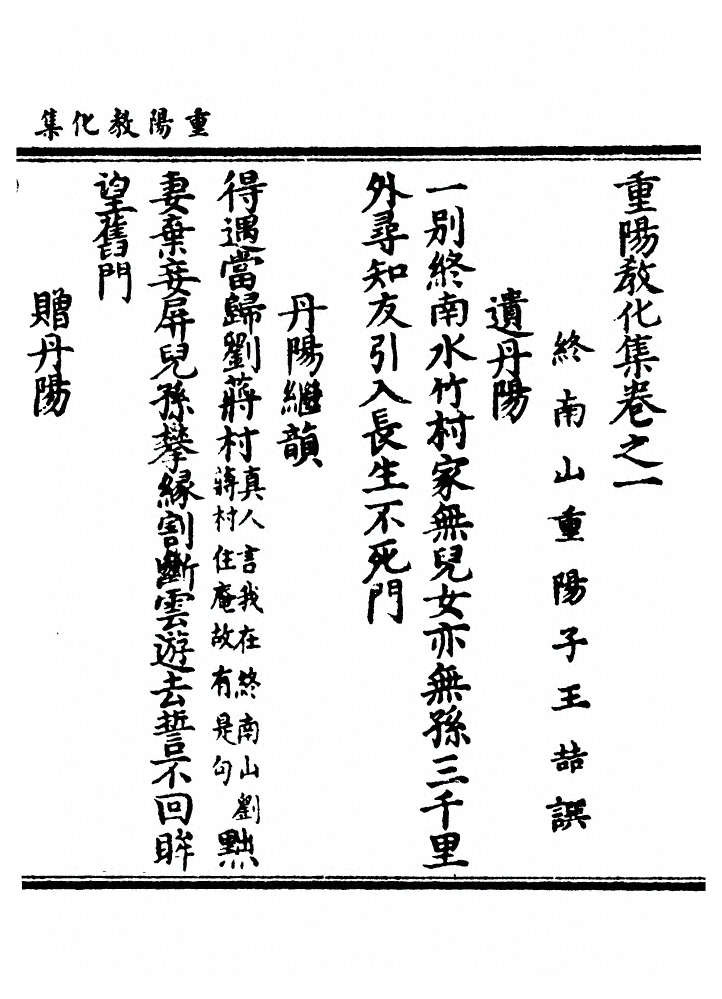 重陽教化集
重陽教化集卷之一
終南山重陽子王喆譔
遺丹陽
一別終南水竹村家無兒女亦無孫三千里
外尋知友引入長生不死門
丹陽繼韻
得遇當歸劉蔣村真人言我在終南山劉蔣村住庵故有是句黜
妻棄妾屏兒孫攀縁割斷雲遊去誓不回眸
望舊門
贈丹陽